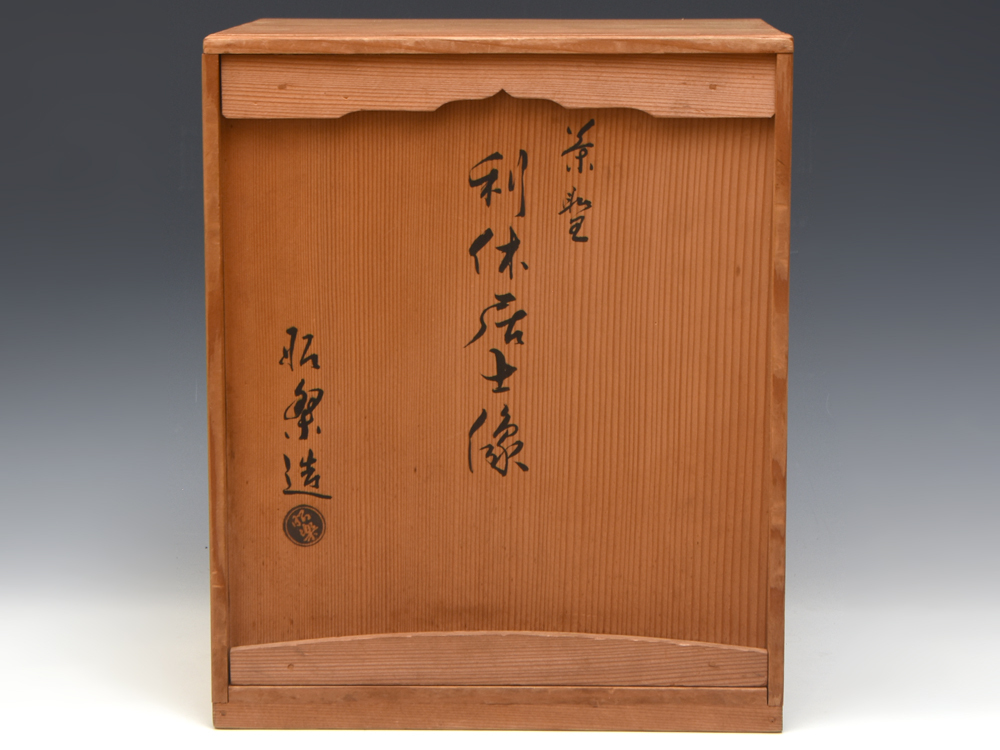 茶聖
利休居士像
昭楽造